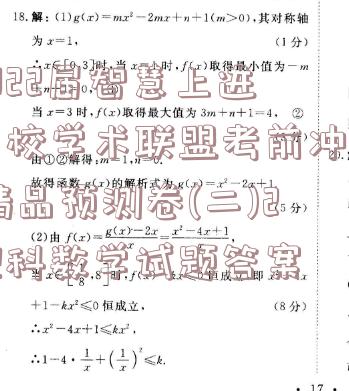 18.解:(1)g(x)=mx²-2mx+n+1(m>0),其对称轴
为 x=1,
(1分)
∴x∈[0,3]时,当 x=1时,f(x)取得最小值为-m
+n+1=0, ①
当 x=3 时,f(x)取得最大值为 3m+n+1=4, ②
由①②解得:m=1,n=0.
故得函数 g(x)的解析式为 g(x)=x²-2x+1
(5分)
(2)由 f(x)=(g(x)-2x)/x=(x²-4x+1)/x,
当 x∈[1/8,8]时,f(x)-kx≤0恒成立,即 x²-4x
+1-kx²≤0恒成立,
(8分)
∴x²-4x+1≤kx²,
∴1-4·1/x+(1/x)²≤k.
· 17 ·
022届智慧上进
校学术联盟考前冲
精品预测卷(二)2
理科数学试题答案